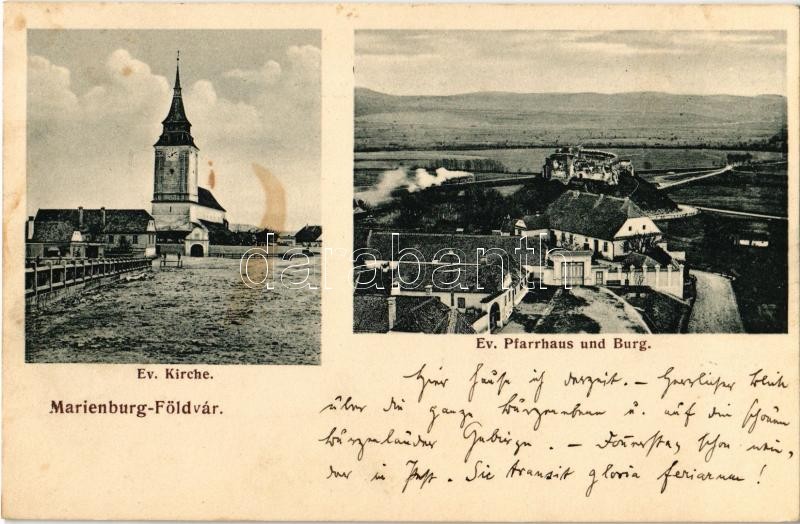 darabanth.com
Ev. Kirche.
Ev. Pfarrhaus und Burg.
Marienburg-Földvár.
Hier hause ich derzeit. – Herrlicher Blick
über die ganze Burzenebene u. auf die schönen
Burzenländer Gebirge. – Donnerstag schon wie-
der in Pest. Sic transit gloria feriarum!